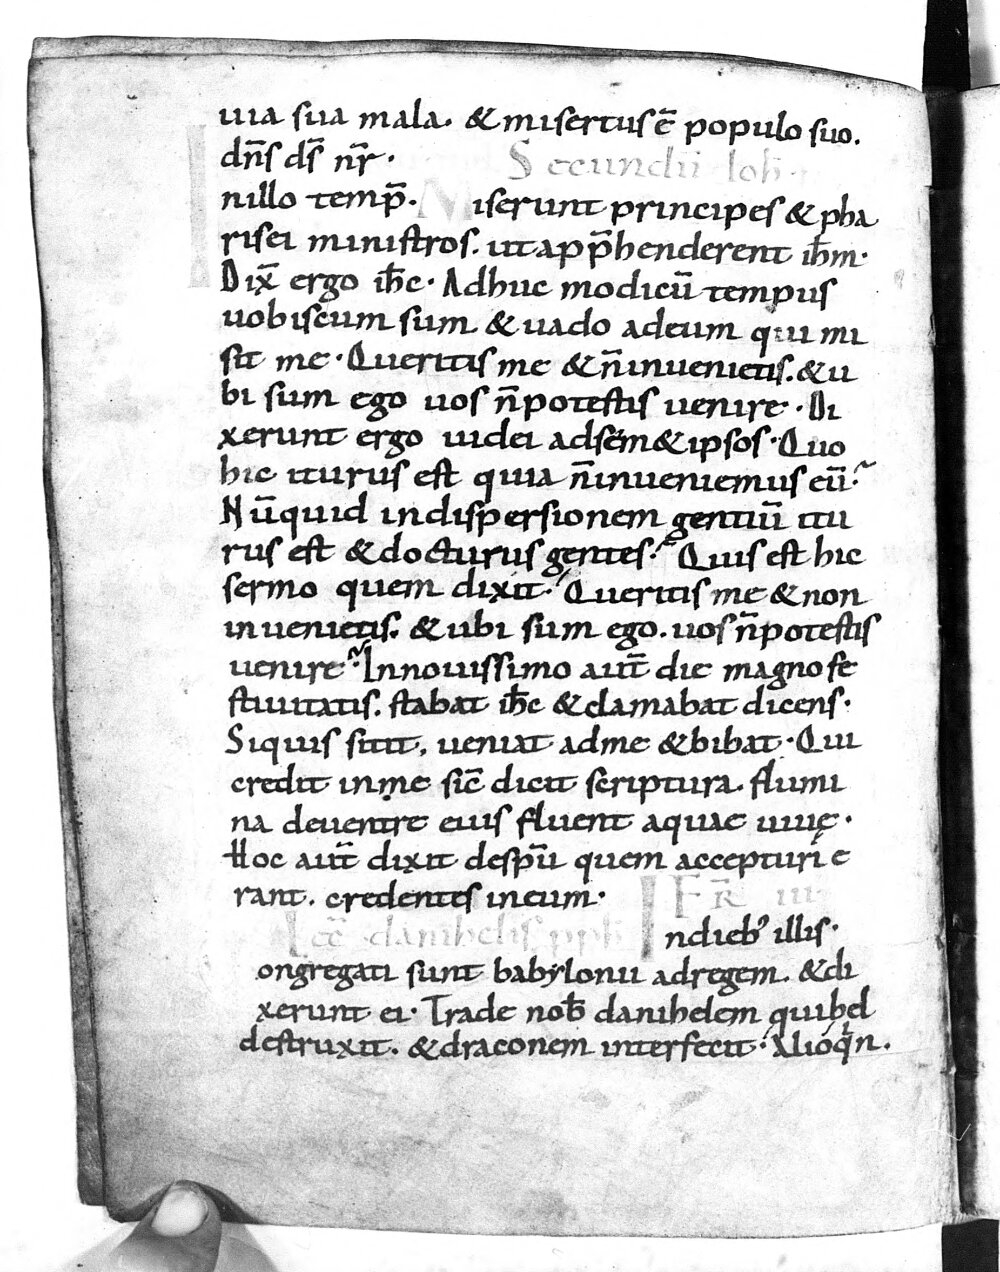 uia sua mala. & misertus ē populo suo.
dn̄s ds̄ nr̄. Secundū Ioh̄.
nillo temp̄. Miserunt principes & pha
risei ministros. ut app̄henderent ih̄m.
Dix̄ ergo ih̄c. Adhuc modicū tempus
uobiscum sum & uado ad eum qui mi
sit me. Queritis me & n̄ inuenietis. & u
bi sum ego uos n̄ potestis uenire. Di
xerunt ergo iudei ad sem& ipsos. Quo
hic iturus est quia n̄ inueniemus eū?
Nūquid in dispersionem gentiū itu
rus est & docturus gentes? Quis est hic
sermo quem dixit? Queritis me & non
inuenietis. & ubi sum ego. uos n̄ potestis
uenire? In nouissimo aut̄ die magno fe
stiuitatis. stabat ih̄c & clamabat dicens.
Siquis sitit, ueniat ad me & bibat. Qui
credit in me sic̄ dicit scriptura. flumi
na de uentre eius fluent aquae uiuę.
Hoc aut̄ dixit de sp̄u quem accepturi e
rant. credentes in eum. FR̄ III
Lec̄ danihelis pph̄ Indieb' illis.
ongregati sunt babylonii ad regem. & di
xerunt ei. Trade nob̄ danihelem qui bel
destruxit. & draconem interfecit. Alioq̄n.